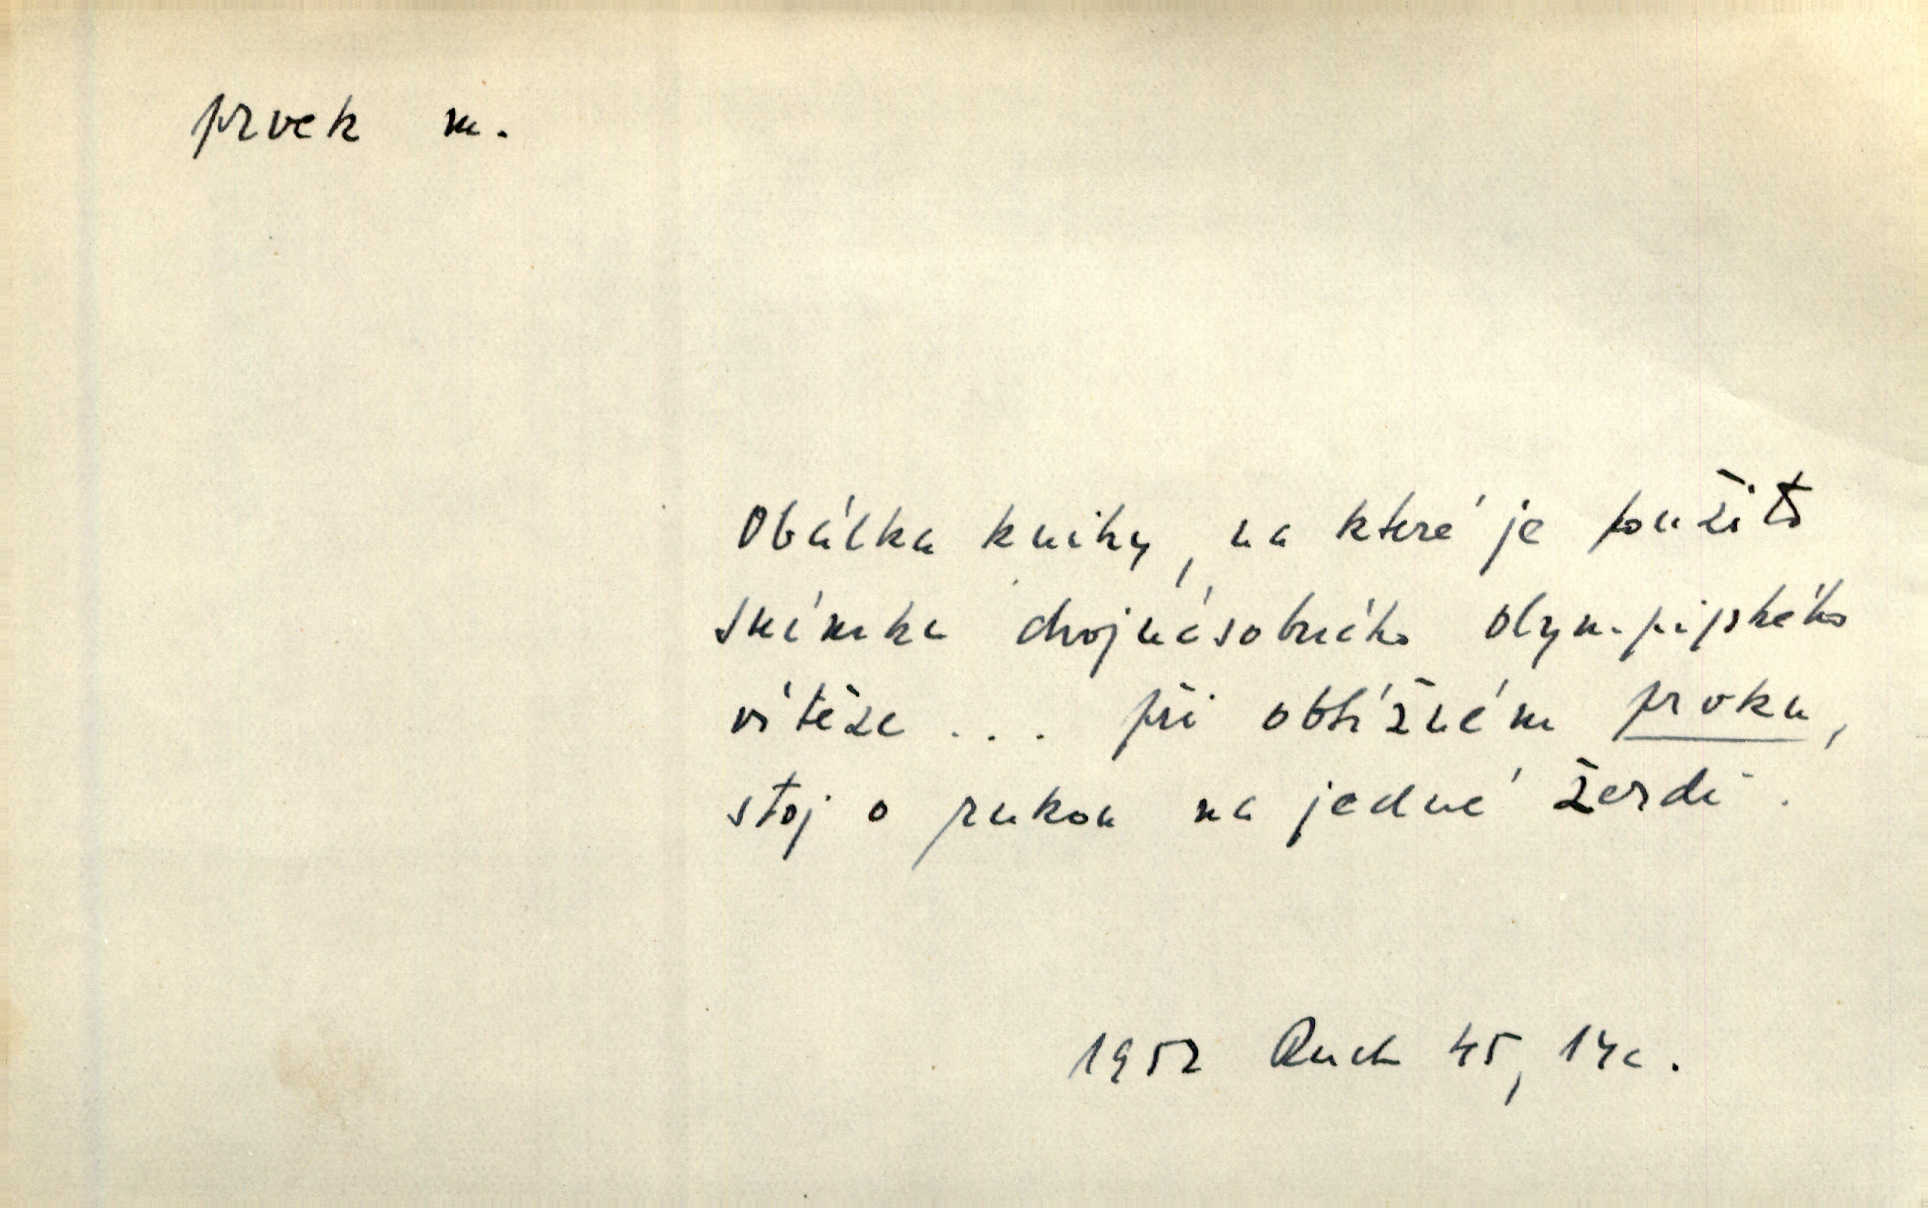 prvek m.
Obálka knihy, na které je použito
snímku dvojnásobného olympijského
vítěze ... při obtížném prvku,
stoj o rukou na jedné žerdi.
1952 Ruch 45, 14c.